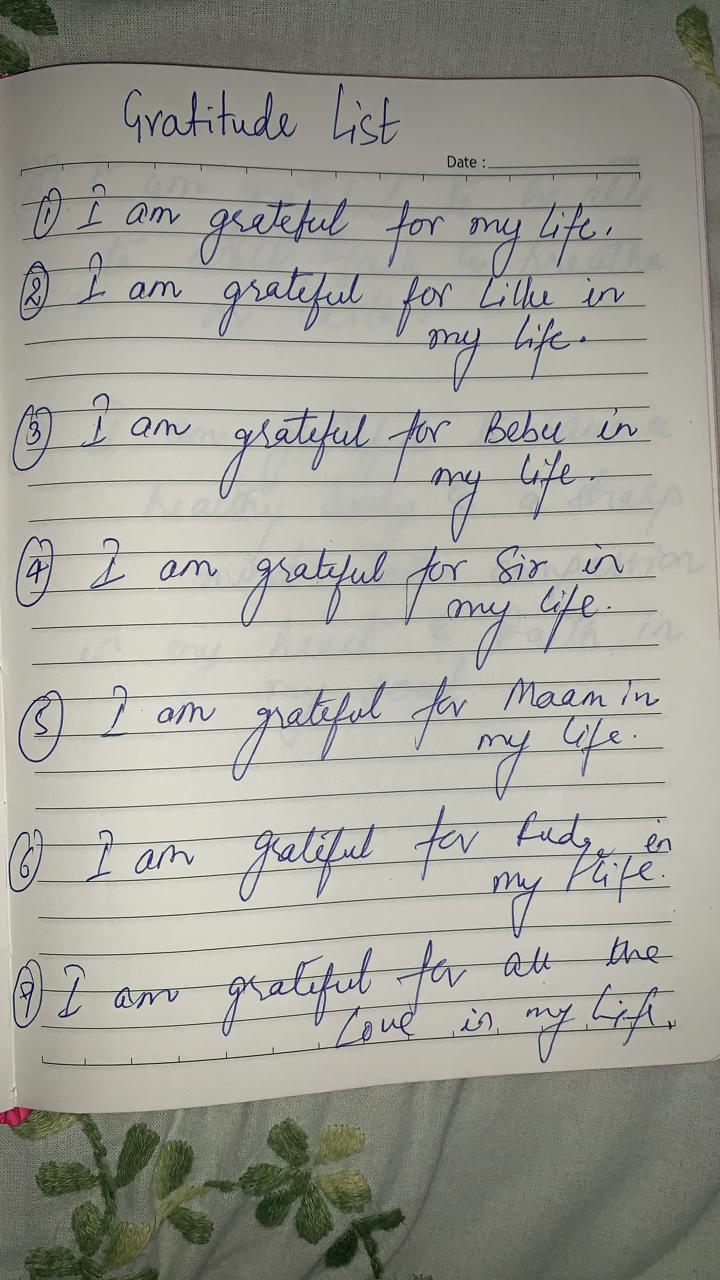 Gratitude List
Date :
① I am grateful for my life.
② I am grateful for in
my life.
③ I am grateful for Bebu in
my life.
④ I am grateful for Sir in
my life.
⑤ I am grateful for Maam in
my life.
⑥ I am grateful for in
my life.
⑦ I am grateful for all the
love in my life.